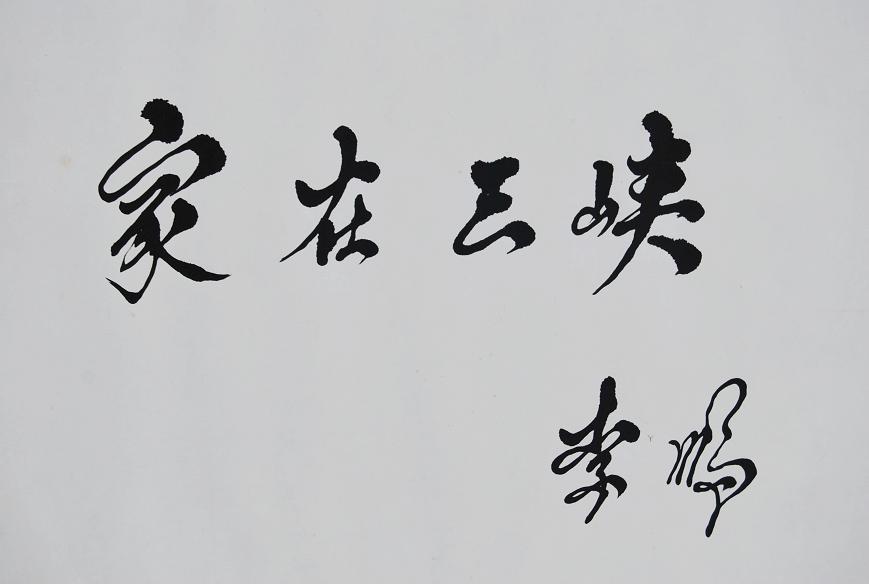 家在三峡
李鹏